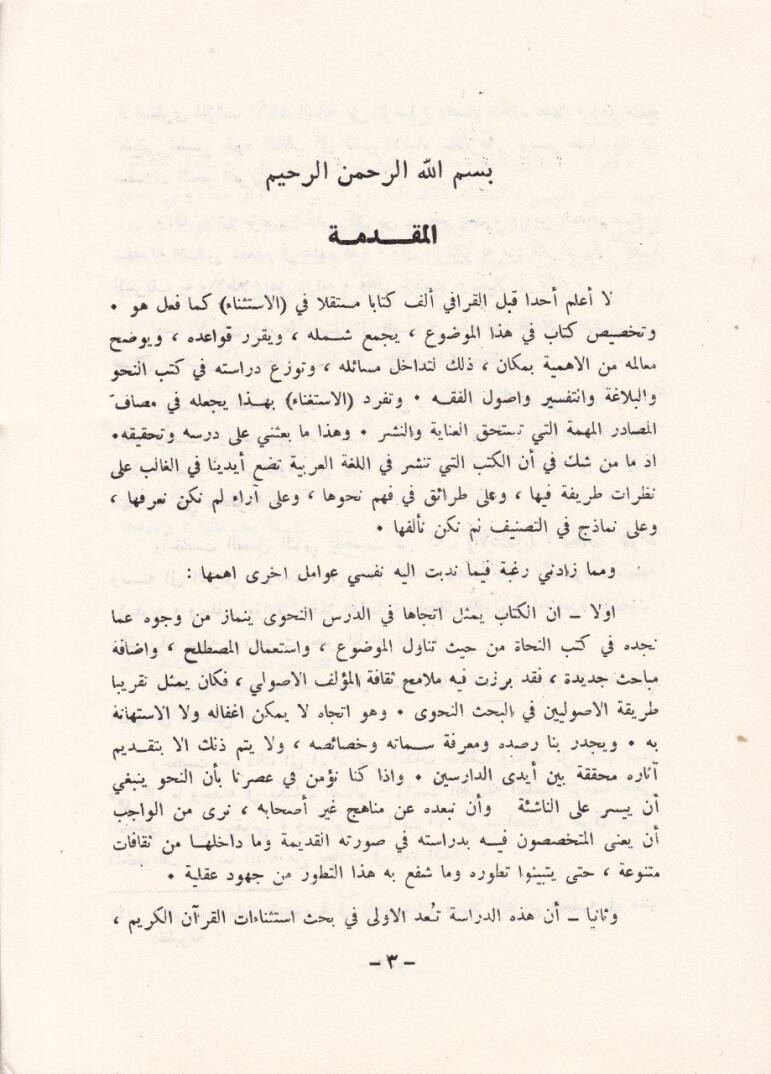 بسم الله الرحمن الرحيم
المقـــدمــة
لا أعلم أحدا قبل القرافي ألف كتابا مستقلا في (الاستثناء) كما فعل هو •
وتخصيص كتاب في هذا الموضوع ، يجمع شــمله ، ويقرر قواعده ، ويوضح
معالمه من الاهمية بمكان ، ذلك لتداخل مسائله ، وتوزع دراسته في كتب النحو
والبلاغة والتفسير واصول الفقـه • وتفرد (الاستغناء) بهــذا يجعله في مصافّ
المصادر المهمة التي تستحق العناية والنشر • وهذا ما بعثني على درسه وتحقيقه•
اذ ما من شك في أن الكتب التي تنشر في اللغة العربية تضع أيدينا في الغالب على
نظرات طريفة فيها ، وعلى طرائق في فهم نحوها ، وعلى آراء لم نكن نعرفها ،
وعلى نماذج في التصنيف لم نكن نألفها •
ومما زادني رغبة فيما ندبت اليه نفسي عوامل اخرى اهمها :
اولا ــ ان الكتاب يمثل اتجاها في الدرس النحوى ينماز من وجوه عما
نجده في كتب النحاة من حيث تناول الموضوع ، واستعمال المصطلح ، واضافة
مباحث جديدة ، فقد برزت فيه ملامح ثقافة المؤلف الاصولي ، فكان يمثل تقريبا
طريقة الاصوليين في البحث النحوى • وهو اتجاه لا يمكن اغفاله ولا الاستهانة
به • ويجدر بنا رصده ومعرفة سماته وخصائصه ، ولا يتم ذلك الا بتقــديم
آثاره محققة بين أيدى الدارسين • واذا كنا نؤمن في عصرنا بأن النحو ينبغي
أن ييسر على الناشئة وأن نبعده عن مناهج غير أصحابه ، نرى من الواجب
أن يعنى المتخصصون فيــه بدراسته في صورته القديمة وما داخلهــا من ثقافات
متنوعة ، حتى يتبينوا تطوره وما شفع به هذا التطور من جهود عقلية •
وثانيا ــ أن هذه الدراسة تُعد الاولى في بحث استثناءات القرآن الكريم ،
– ٣ –